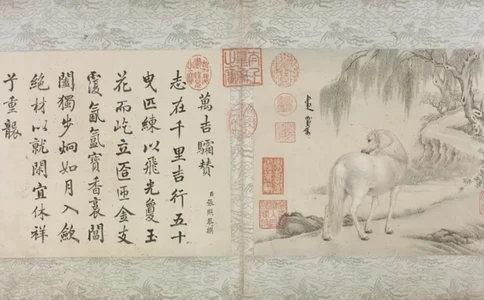 萬吉驦贊
臣張照恭撰
志在千里吉行五十
曳匹練以飛光敻玉
花而屹立匼匝金支
氤氳寶香裛閶
闔獨步炯如月入歛
絕材以就閑宜休祥
重襲